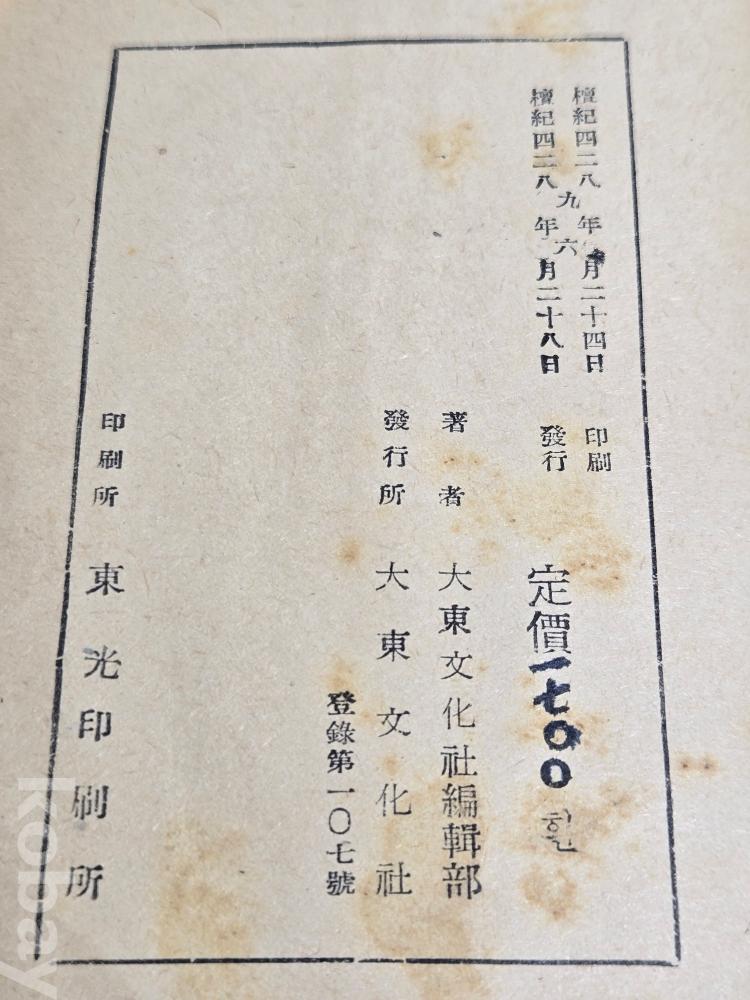 檀紀四二八九年六月二十四日 印刷
檀紀四二八九年六月二十八日 發行
定價一七〇〇환
著者 大東文化社編輯部
發行所 大東文化社
登錄第一〇七號
印刷所 東光印刷所
kobay